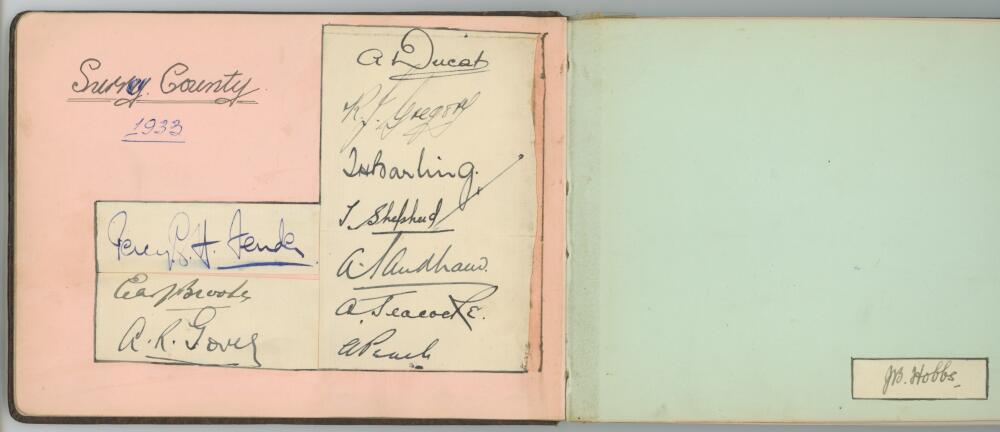 Surrey County.
1933
Percy G. H. Fender
A. R. Gover
A Ducat
R. J. Gregory
T H Barling.
T. Shepherd
A. Sandham.
E.
J B. Hobbs.